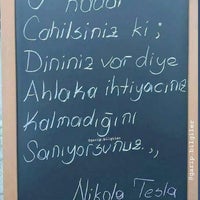 O kadar
Cahilsiniz ki ;
Dininiz var diye
Ahlaka ihtiyacınız
Kalmadığını
@garip.bilgiler
Sanıyorsunuz.,,
Nikola Tesla
@garip.bilgiler